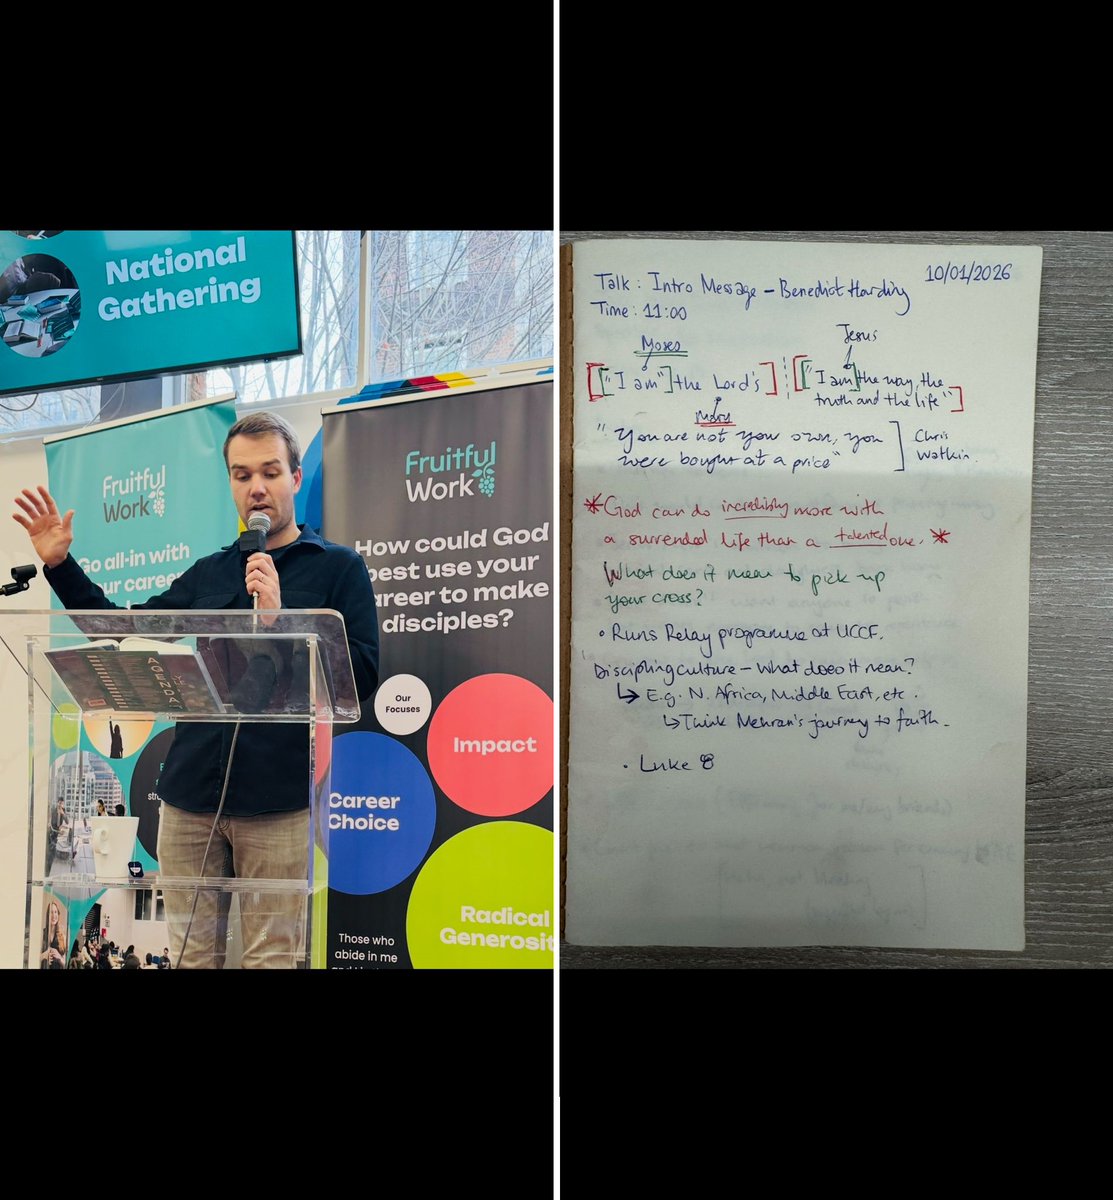 National
Gathering
Fruitful
Work
Go all-in with
your career
Fruitful
Work
How could God
best use your
career to make
disciples?
AGENDA
Our
Focuses
Impact
Career
Choice
Radical
Generosit
Those who
abide in me
Talk: Intro Message - Benedict Harding
10/01/2026
Time: 11:00
Moses
Jesus
["I am"] the Lord's]
["I am] the way, the
truth and the life"]
Mary
"You are not your own, you
were bought at a price"
Chris
Watkin
*God can do incredibly more with
a surrended life than a talented one. *
What does it mean to pick up
your cross?
• Runs Relay programme at UCCF.
Discipling culture - What does it mean?
↳ E.g. N. Africa, Middle East, etc.
↳ Think Mehran's journey to faith.
• Luke 8